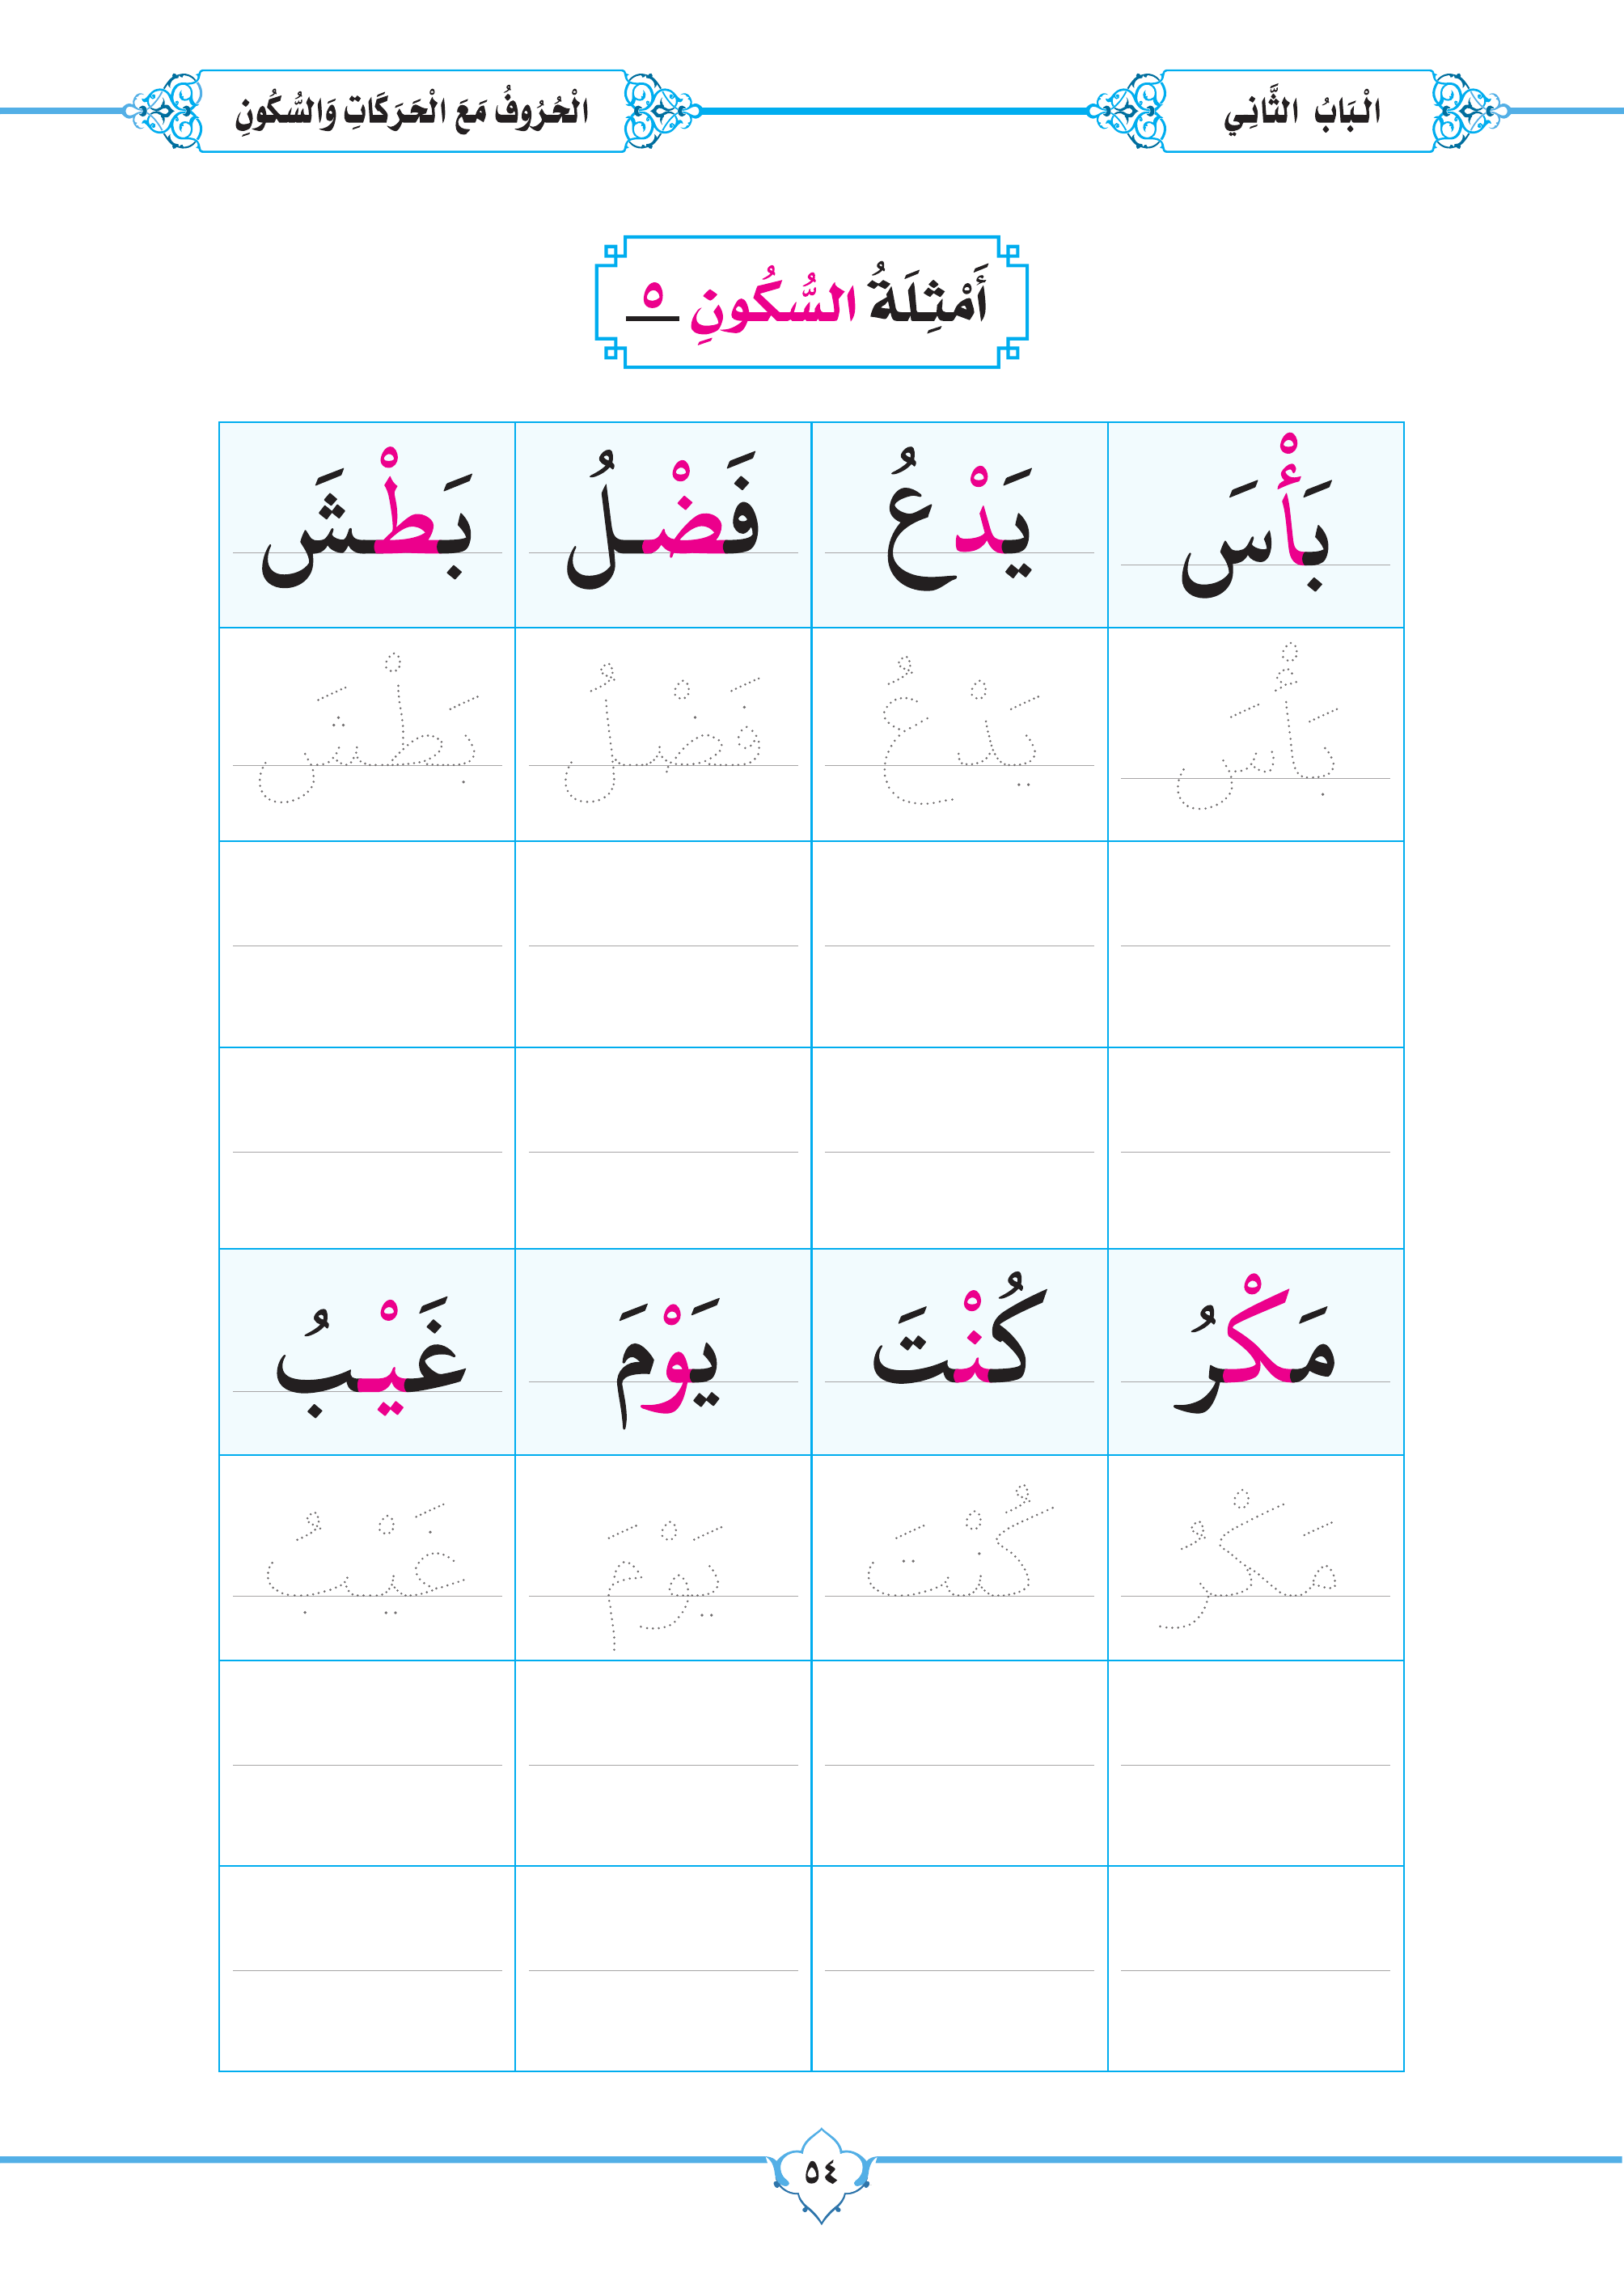 الْبَابُ الثَّانِي
الْحُرُوفُ مَعَ الْحَرَكَاتِ وَالسُّكُونِ
أَمْثِلَةُ السُّكُونِ ـْ
بَأْسَ يَدْعُ فَضْلُ بَطْشَ
بَأْسَ يَدْعُ فَضْلُ بَطْشَ
مَكْرُ كُنْتَ يَوْمَ غَيْبُ
مَكْرُ كُنْتَ يَوْمَ غَيْبُ
٥٤